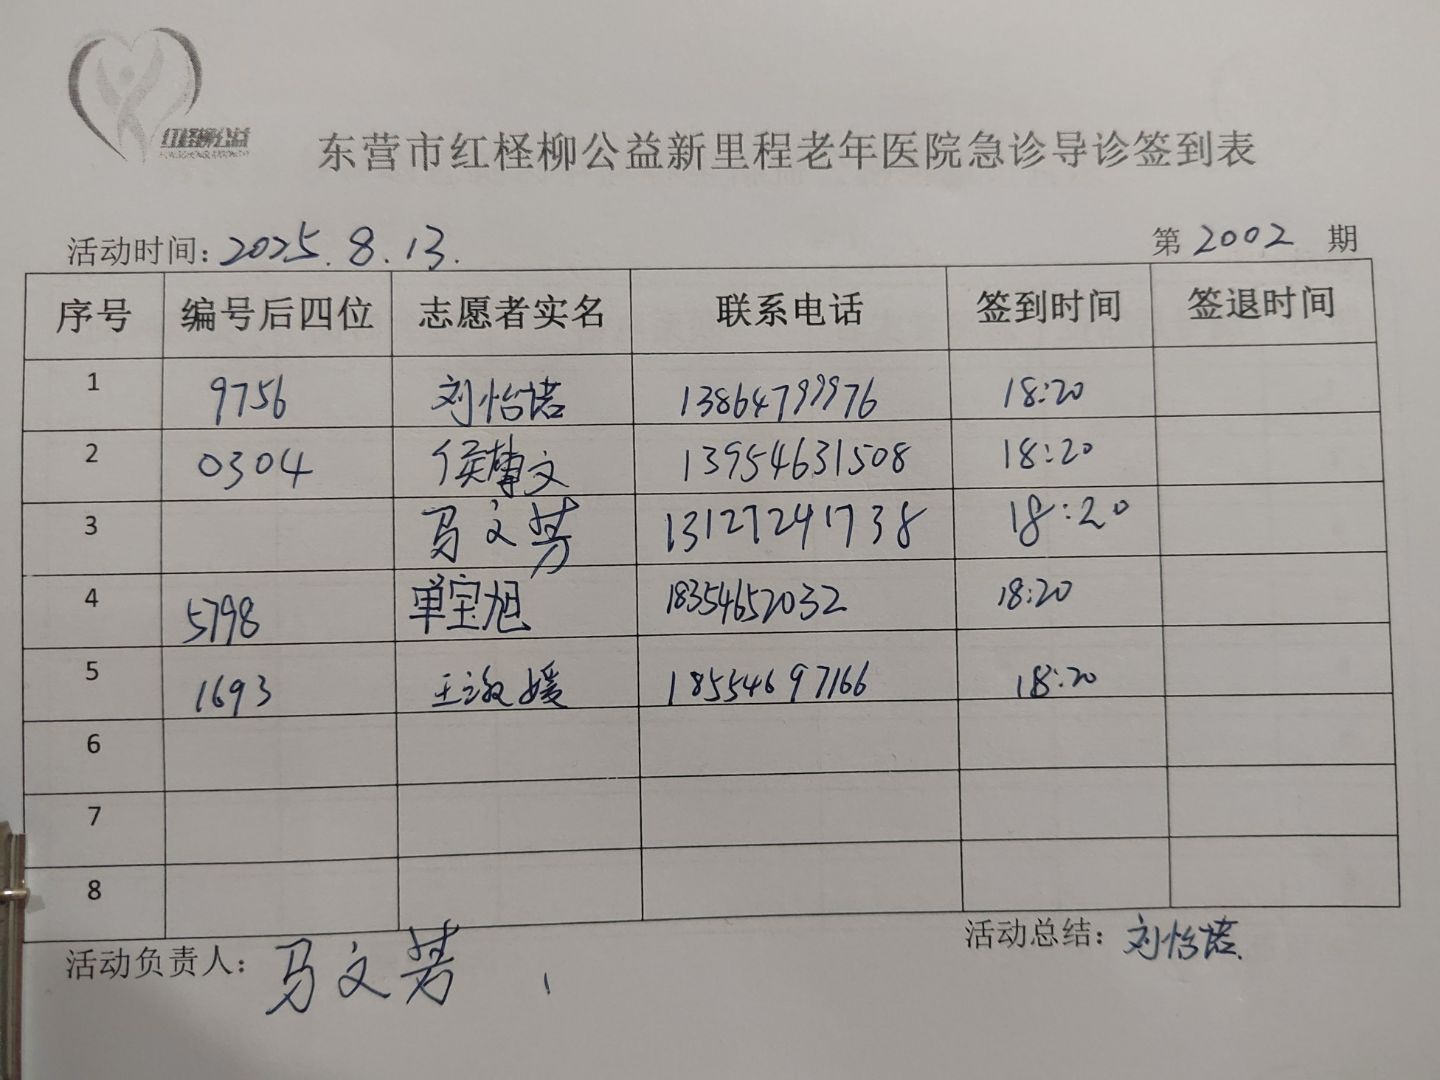 红柽柳公益
东营市红柽柳公益新里程老年医院急诊导诊签到表
活动时间：2025.8.13. 第2002期
序号 编号后四位 志愿者实名 联系电话 签到时间 签退时间
1 9756 刘怡诺 13864799976 18:20
2 0304 侯 文 13954631508 18:20
3 马文芳 13127241738 18:20
4 5798 单宝旭 18354652032 18:20
5 1693 王淑媛 18554697166 18:20
6
7
8
活动负责人：马文芳 活动总结：刘怡诺